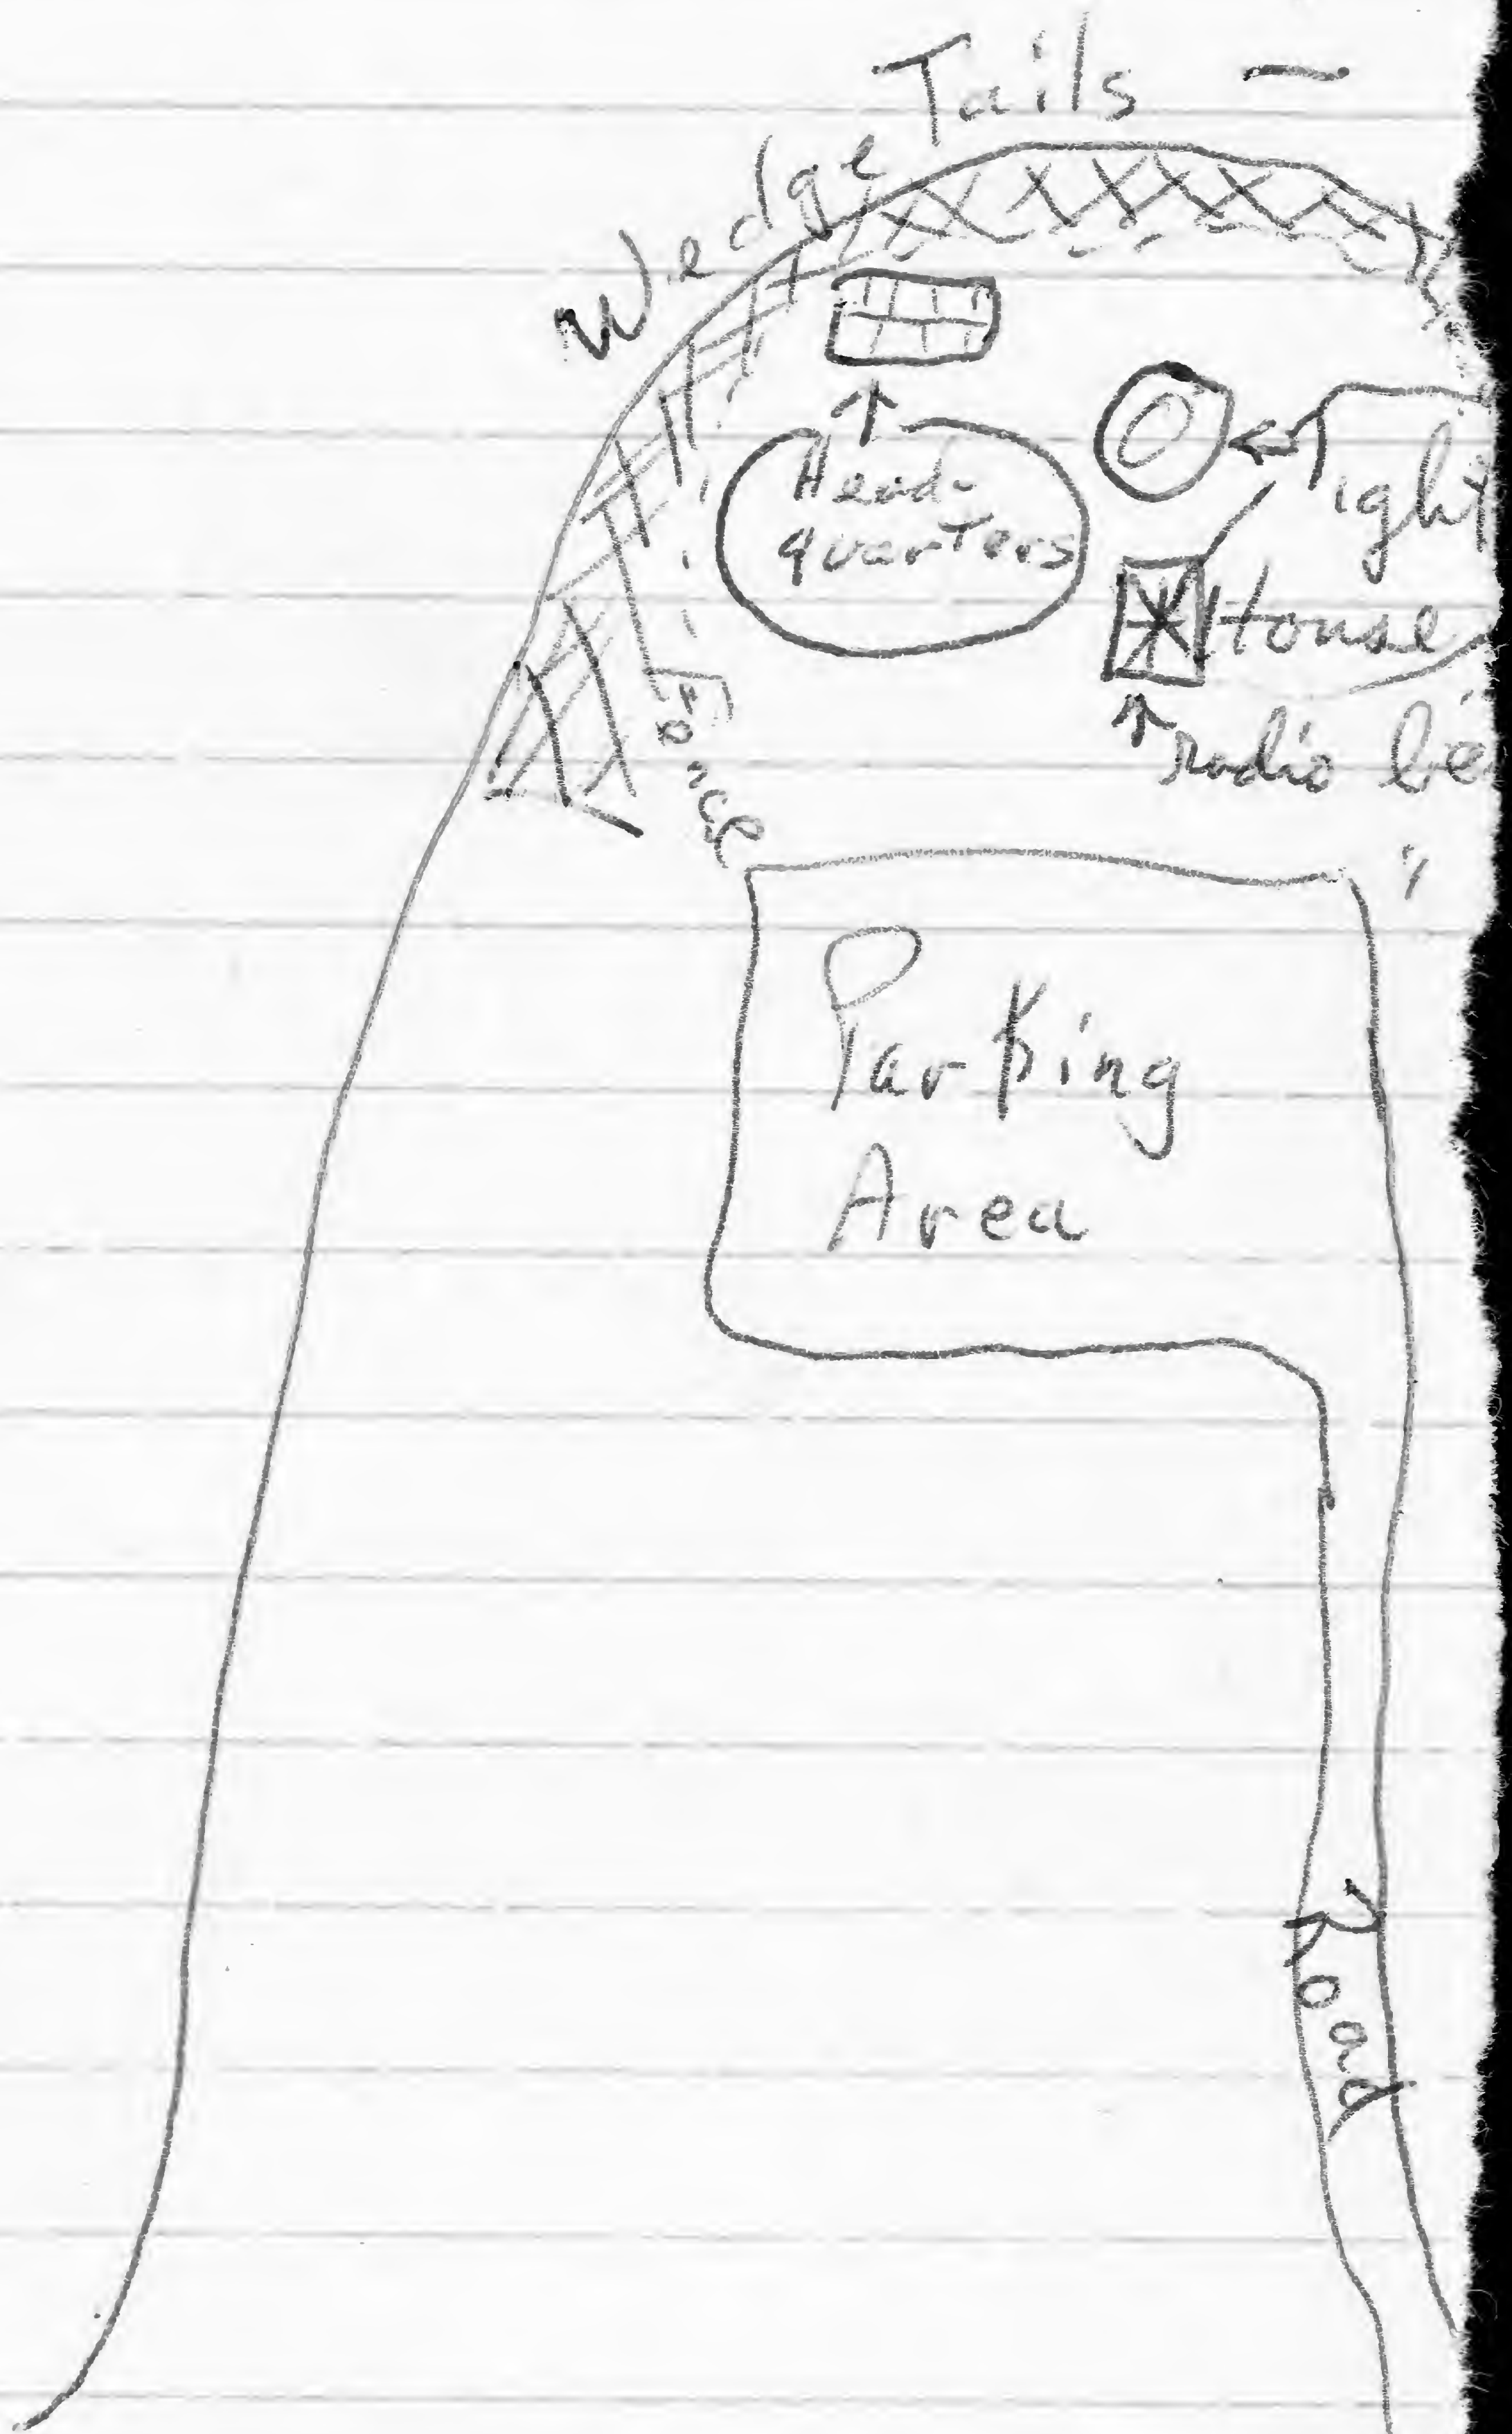 Wedge Tails —
Head-
quarters
Light
House
radio be
Fence
Parking
Area
Road